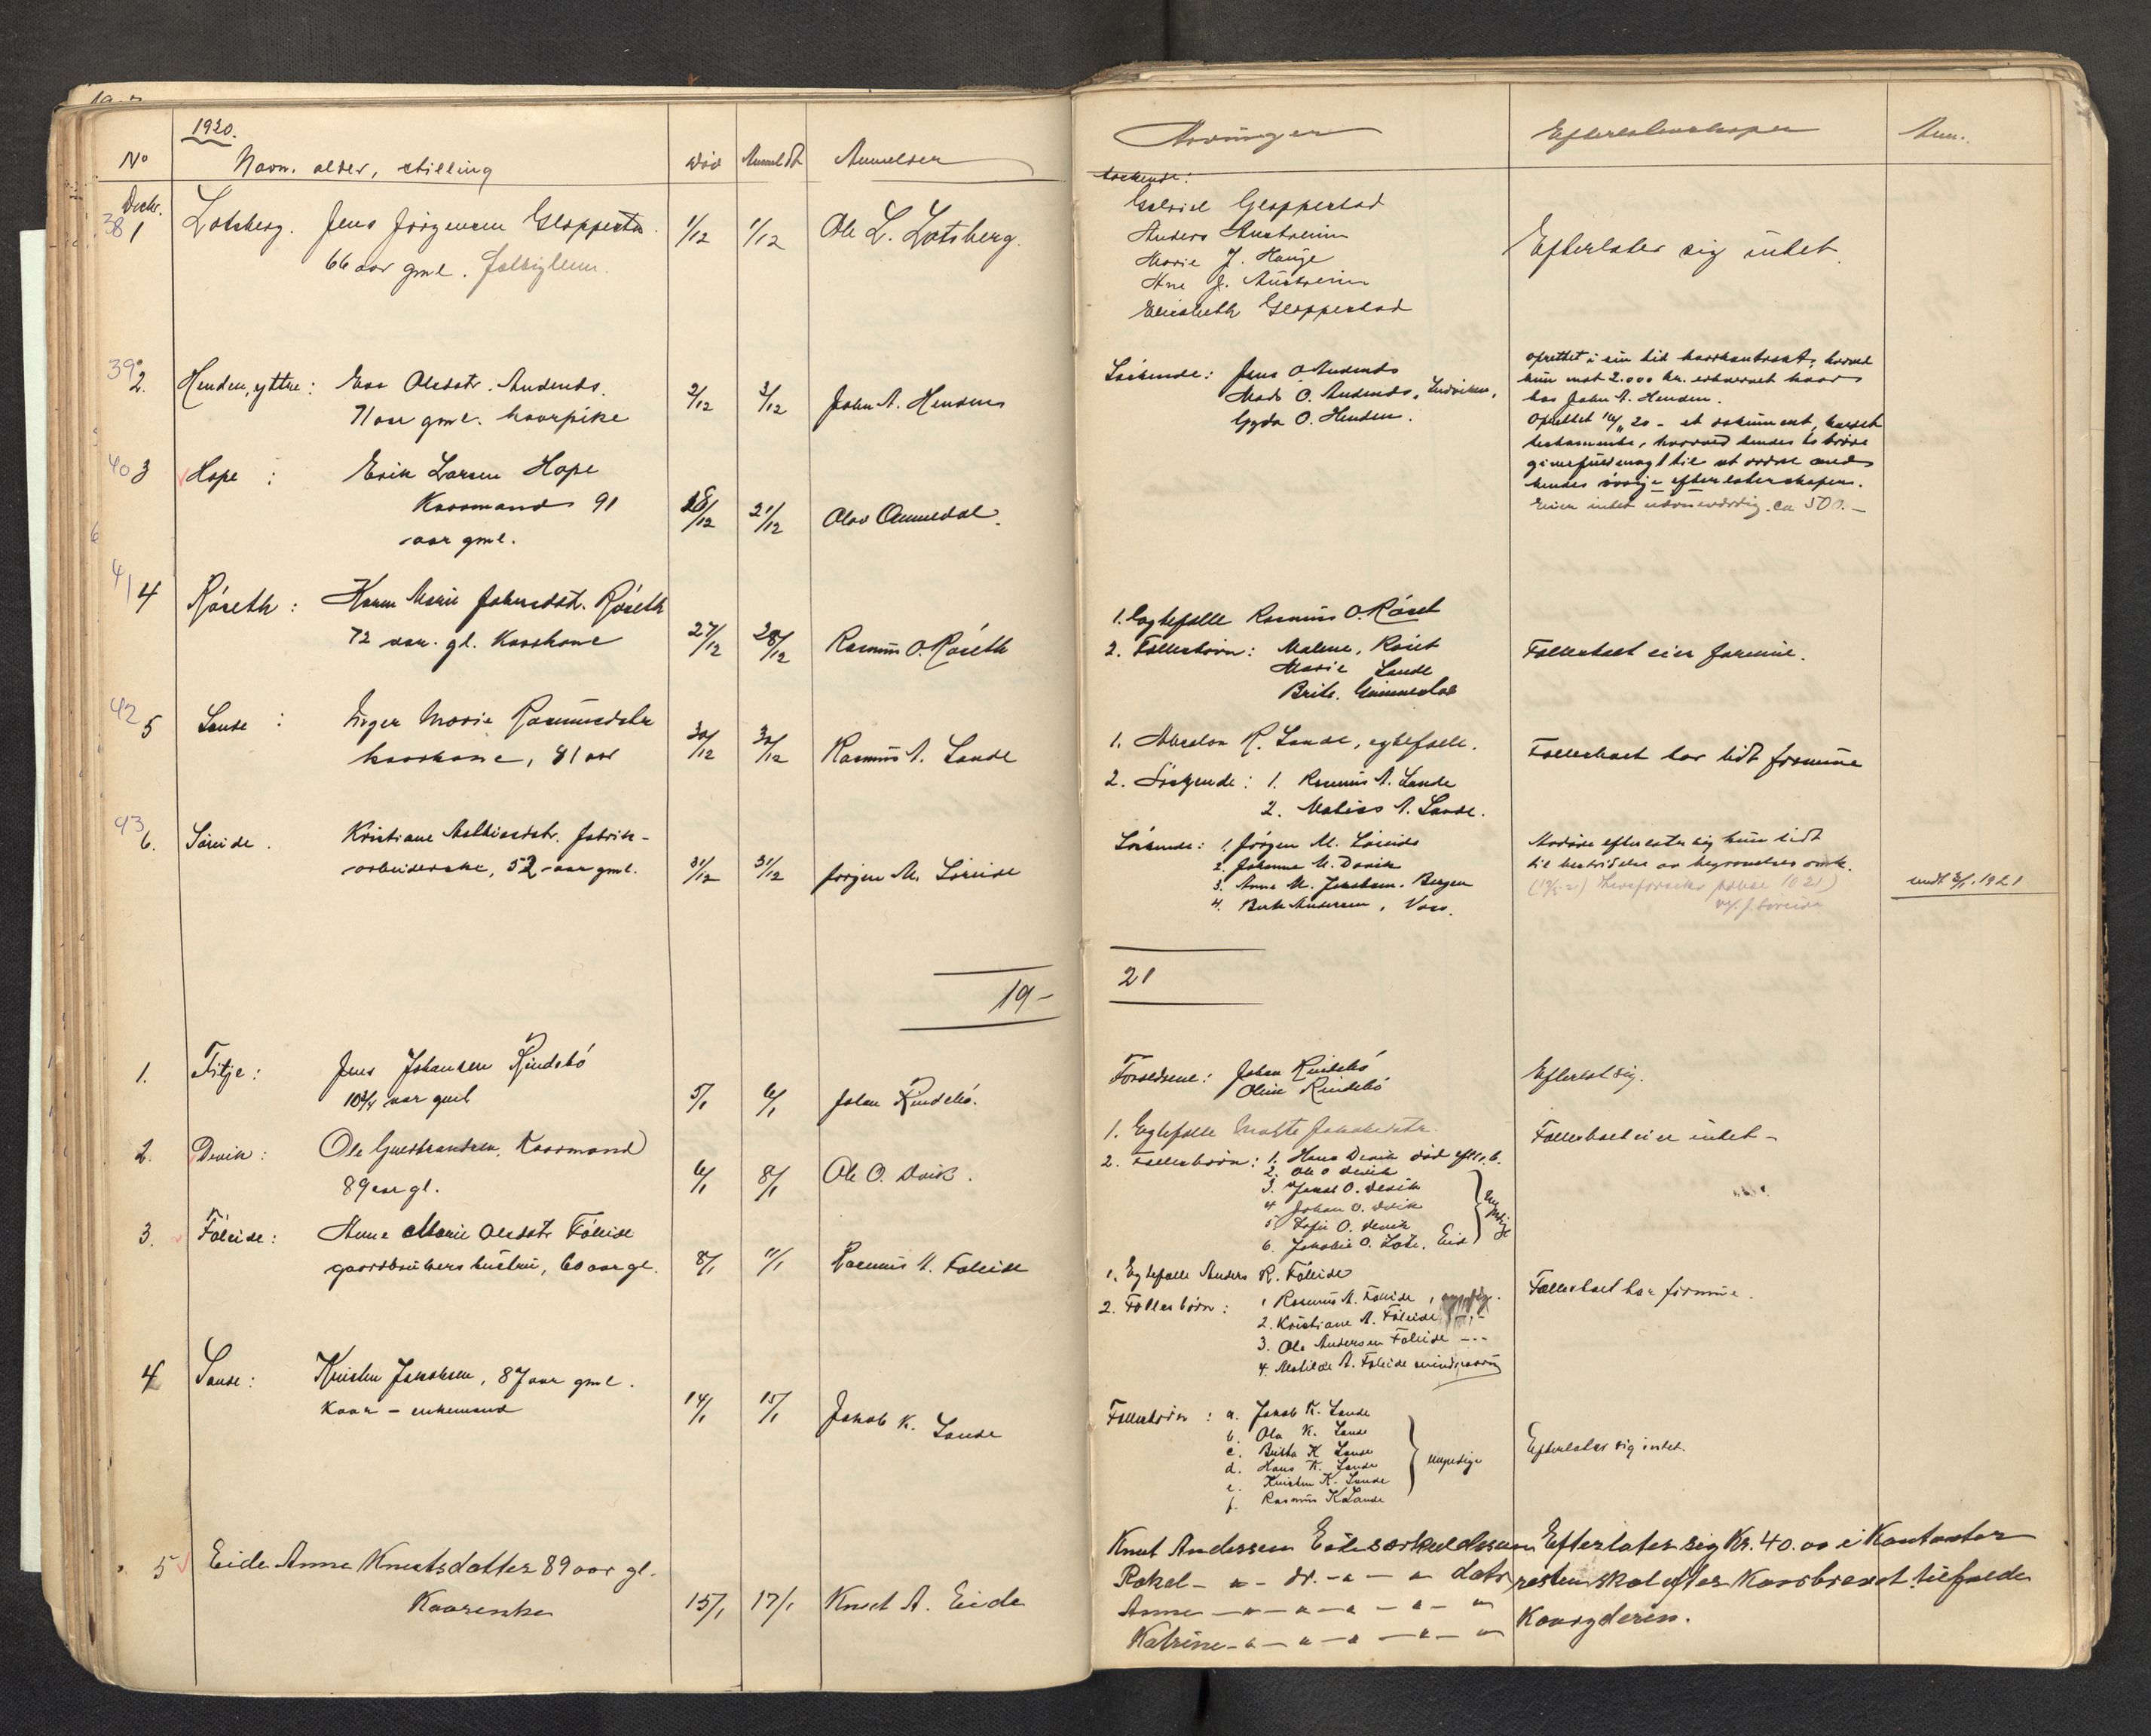 1920.
No
Navn, alder, stilling
Død
Anmeldt
Anmelder
Arvinger
Efterlatenskaper
Anm.
Decbr.
38
1
Lotsberg. Jens Jørgensen Gloppestad.
66 aar gml.
1/12
1/12
Ole L. Lotsberg.
Søskende:
Gabriel Gloppestad
Anders Austreim
Marie J. Hauge
Ane J. Austreim
Elisabeth Gloppestad
Efterlater sig intet.
39
2.
Henden, yttre: Eva Olsdtr. Andenæs.
71 aar gml. kaarpike
2/12
3/12
John A. Henden
Søskende: Jens O Andenæs
Mads O. Andenæs,
Gyda O. Henden.
oprettet i sin tid kaarkontrakt, hvorved
hun mot 2.000 kr. erhvervet kaar
hos John A. Henden.
Oprettet 20 - et dokument, kaldt
testamente, hvorved hendes to brødre
gives fuldmagt til at ordne med
hendes øvrige efterlatenskaper.
Eier intet ca 500.-
40
3
Hope : Erik Larsen Hope
Kaarmand 91
aar gml.
18/12
21/12
Olav Ommedal.
41
4
Røseth : Karen Marie Johnsdat. Røseth
72 aar. gl. Kaarkone
27/12
28/12
Rasmus O. Røseth
1. Egtefælle Rasmus O. Røset
2. Fællesbørn: Malene, Røset
Marie Sande
Brite. Gimmestad
Fællesboet eier formue.
42
5
Sande : Inger Marie Rasmusdatr
kaarkone, 81 aar
30/12
30/12
Rasmus A. Sande
1. Absalon R. Sande, egtefælle.
2. Søskende: 1. Rasmus A. Sande
2. Matias A. Sande.
Fællesboet har lidt formue
43
6.
Søreide. Kristiane Mathiasdtr. fabrik-
arbeiderske, 52 aar gml.
31/12
31/12
Jørgen M. Søreide
Søskende: 1. Jørgen M. Søreide
2. Johanne M. Devik
3. Anna M. Jakobsen. Bergen
4. Berte Andersen, Voss.
Avdøde efterlater sig kun lidt
til bestridelse av begravelses omk.
v/ J. Søreide
sendt 3/1. 1921
19-
21
1.
Fitje: Jens Johansen Rindebø
10 3/4 aar gml
5/1
6/1
Johan Rindebø.
Forældrene: Johan Rindebø
Oline Rindebø
Efterlot sig.
2.
Devik: Ole Guttormsen, Kaarmand
89 aar gl.
6/1
8/1
Ole O. Devik.
1. Egtefælle Marte Jakobsdtr.
2. Fællesbørn: 1. Hans Devik død efterl. b.
2. Ole O Devik
3. Jakob O. Devik
4. Johan O. Devik
5. Sofie O. Devik
6. Jakobie O. Lote. Eid
myndige
Fællesboet eier intet -
3.
Føleide: Anne Marie Olsdatr Føleide
gaardbrukers hustru, 60 aar gl.
8/1
11/1
Rasmus A. Føleide
1. Egtefælle Anders R. Føleide
2. Fællesbørn: 1 Rasmus A. Føleide, myndig.
2. Kristiane A. Føleide -"-
3. Ole Andersen Føleide -"-
4. Matilde A. Føleide mindreaarig
Fællesboet har formue.
4
Sande: Kristen Jakobsen, 87 aar gml.
Kaar - enkemand
14/1
15/1
Jakob K. Sande
Fællesbørn : a. Jakob K. Sande
b. Ola K. Sande
c. Britha K Sande
d. Hans K. Sande
e. Kristen K. Sande
f. Rasmus K Sande
myndige
Efterlater sig intet.
5
Eide Anne Knutsdatter 89 aar gl.
Kaarenke
15/1
17/1
Knut A. Eide
Knut Anderssen Eide særkuldssøn
Rakel - " - dr. - " - " datr
Anne - " - " - " - " - "
Katrine - " - " - " - " - "
Efterlater sig Kr. 40.00 i Kontanter
resten skal efter Kaarbrevet tilfalde
Kaaryderen.